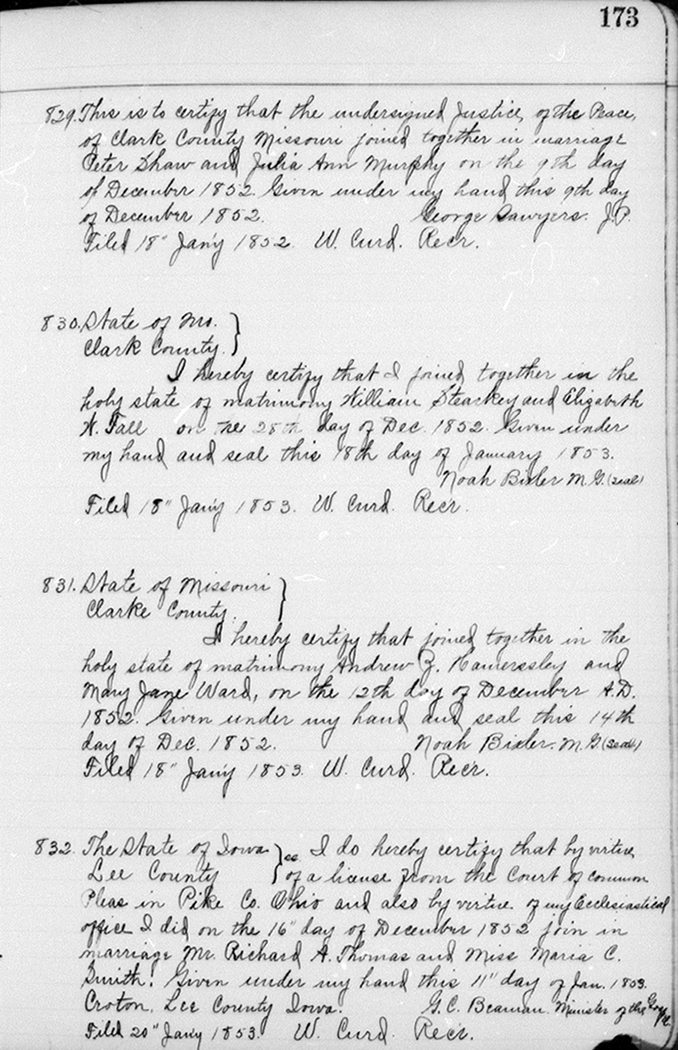 173
829. This is to certify that the undersigned Justice of the Peace,
of Clark County Missouri joined together in marriage
Peter Shaw and Julia Ann Murphy on the 9th day
of December 1852. Given under my hand this 9th day
of December 1852. George Sawyers. J.P.
Filed 18" Jan'y 1852. W. Curd. Rec'r.
830. State of Mo. }
Clark County. }
I hereby certify that I joined together in the
holy state of matrimony William Stearkey and Elizabeth
W. Fall on the 28th day of Dec. 1852. Given under
my hand and seal this 18th day of January 1853.
Noah Bixler M.G. (seal)
Filed 18" Jan'y 1853. W. Curd. Rec'r.
831. State of Missouri }
Clarke County. }
I hereby certify that joined together in the
holy state of matrimony Andrew Z. Hamerssley and
Mary Jane Ward, on the 12th day of December A.D.
1852. Given under my hand and seal this 14th
day of Dec. 1852. Noah Bixler. M.G. (seal)
Filed 18" Jan'y 1853. W. Curd. Rec'r.
832. The State of Iowa } ss I do hereby certify that by virtue
Lee County } of a license from the Court of common
Pleas in Pike Co. Ohio and also by virtue of my Ecclesiastical
office I did on the 16" day of December 1852 join in
marriage Mr. Richard A. Thomas and Miss Maria C.
Smith. Given under my hand this 11" day of Jan. 1853.
Croton, Lee County Iowa. G.C. Beaman. Minister of the
Filed 20" Jan'y 1853. W. Curd. Rec'r.